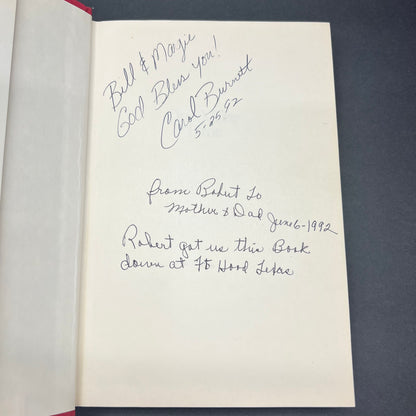 Bill & Margie
God Bless you!
Carol Burnett
5-25-92
from Robert To
Mother & Dad June 6-1992
Robert got us this Book
down at Ft Hood Texas